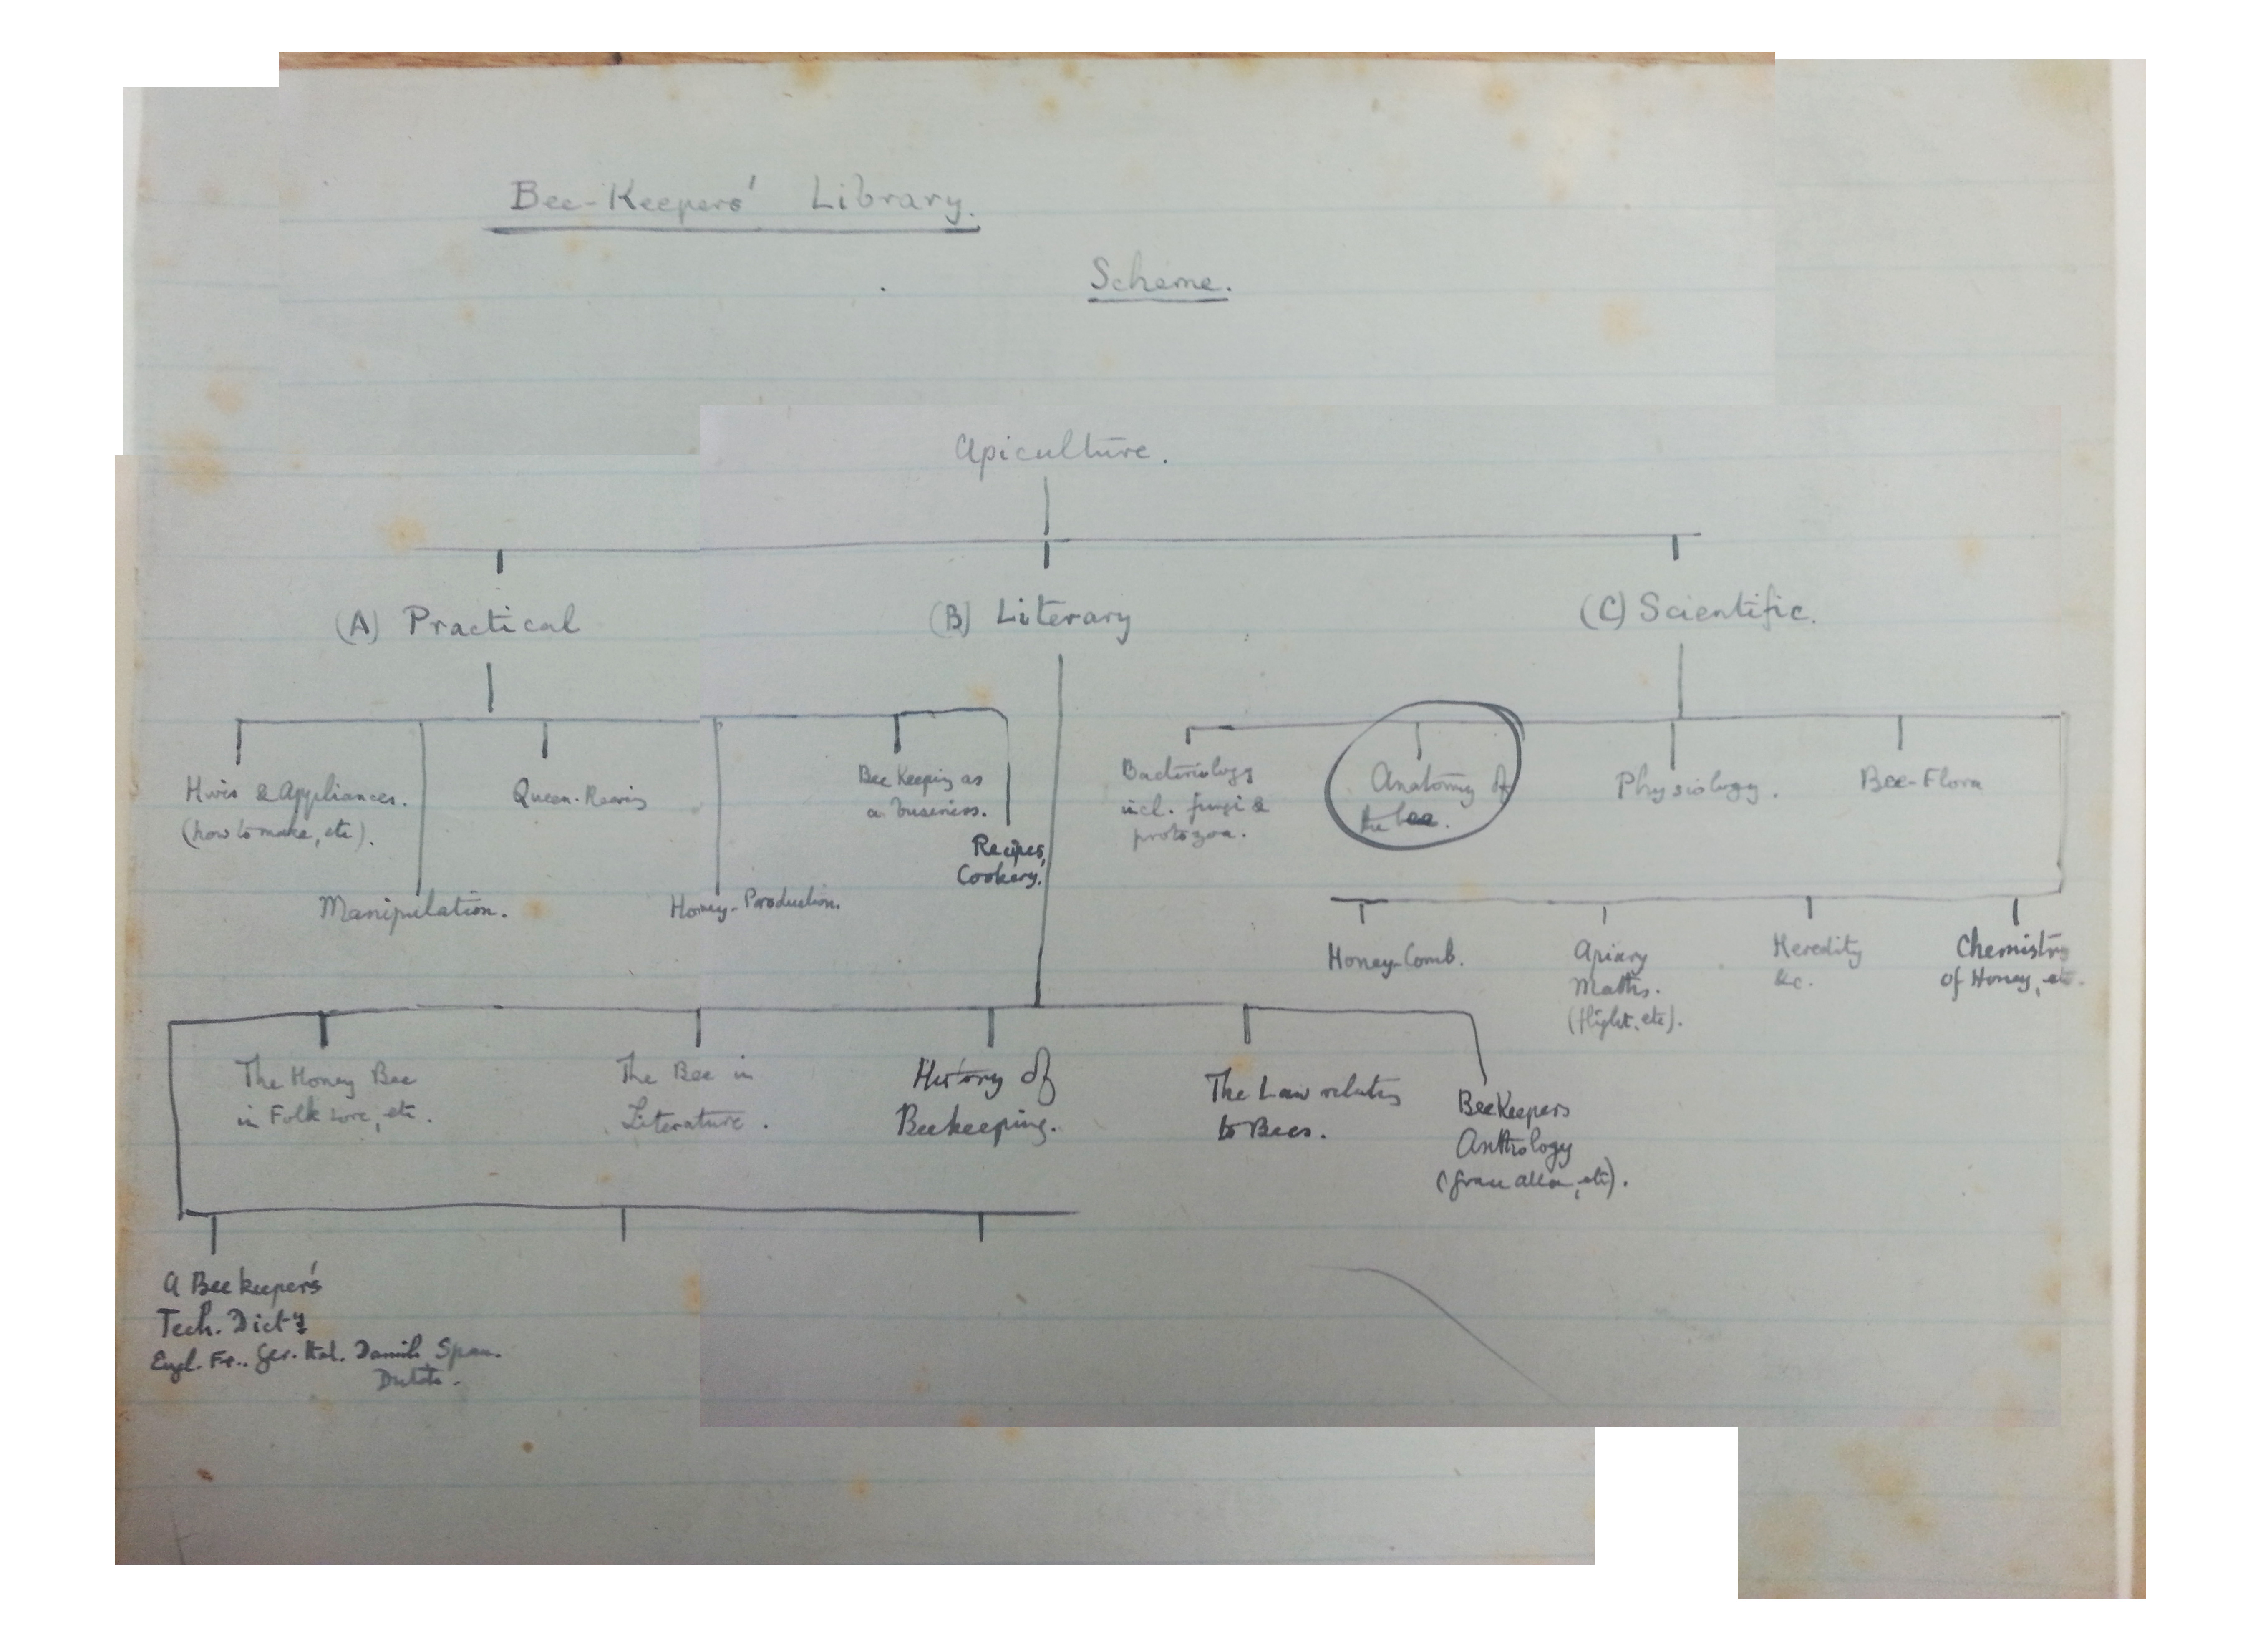 Bee-Keepers' Library.
Scheme.
Apiculture.
(A) Practical
(B) Literary
(C) Scientific.
Hives & Appliances.
(how to make, etc).
Manipulation.
Queen-Rearing
Honey-Production.
Bee Keeping as
a business.
Recipes,
Cookery.
Bacteriology
incl. fungi &
protozoa.
Anatomy of
the bee.
Physiology.
Bee-Flora
Honey-Comb.
Apiary
Maths.
(flight, etc).
Heredity
&c.
Chemistry
of Honey, etc.
The Honey Bee
in Folk Lore, etc.
The Bee in
Literature.
History of
Beekeeping.
The Law relating
to Bees.
BeeKeepers
Anthology
(Grace Allen, etc).
A Beekeeper's
Tech. Dicty
Engl. Fr.. Ger. Ital. Danish, Span.
Dutch.